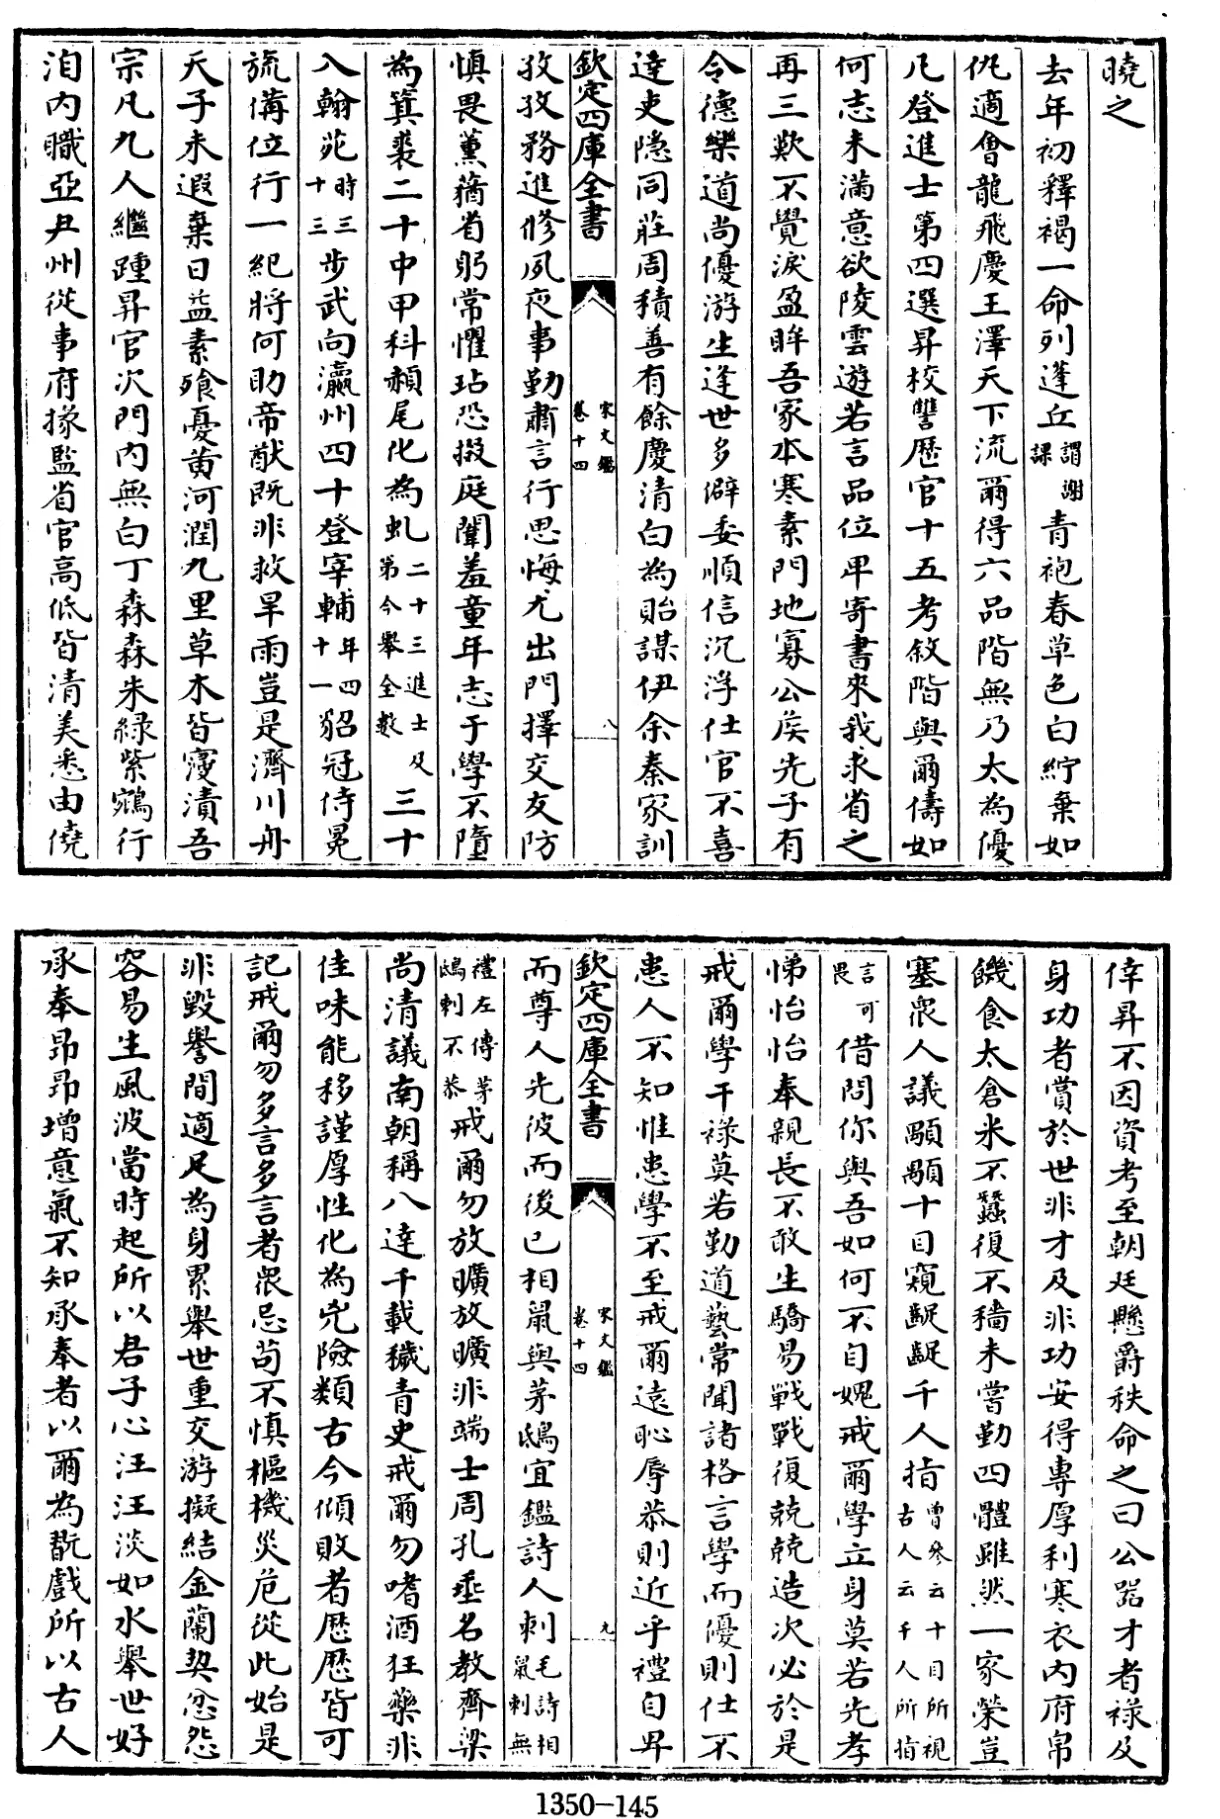 曉之
去年初釋褐一命列蓬丘謂謝課青袍春草色白紵棄如
仇適會龍飛慶王澤天下流爾得六品階無乃太為優
凡登進士第四選昇校讐歷官十五考敘階與爾儔如
何志未滿意欲陵雲遊若言品位卑寄書來我求省之
再三歎不覺淚盈眸吾家本寒素門地寡公侯先子有
令德樂道尚優游生逢世多僻委順信沉浮仕官不喜
達吏隠同莊周積善有餘慶清白為貽謀伊余秦家訓
欽定四庫全書
宋文鑑
卷十四
八
孜孜務進修夙夜事勤肅言行思悔尤出門擇交友防
慎畏薰蕕省躬常懼玷恐掇庭闈羞童年志于學不隨
為箕裘二十中甲科赬尾化為虬二十三進士及第今舉全數三十
入翰苑時三十三步武向瀛州四十登宰輔年四十一貂冠侍冕
旒備位行一紀將何助帝猷既非救旱雨豈是濟川舟
天子未遐棄日益素飱憂黄河潤九里草木皆霑漬吾
宗凡九人繼踵昇官次門内無白丁森森朱綠紫鵷行
洎内職亞尹州從事府掾監省官高低皆清美悉由僥
倖昇不因資考至朝廷懸爵秩命之曰公噐才者祿及
身功者賞於世非才及非功安得專厚利寒衣内府帛
饑食太倉米不蠶復不穡未嘗勤四體雖然一家榮豈
塞衆人議顒顒十目窺齪齪千人指曾參云十目所視古人云千人所指
言可畏借問你與吾如何不自媿戒爾學立身莫若先孝
悌怡怡奉親長不敢生驕易戰戰復兢兢造次必於是
戒爾學干祿莫若勤道藝常聞諸格言學而優則仕不
患人不知惟患學不至戒爾遠恥辱恭則近乎禮自卑
欽定四庫全書
宋文鑑
卷十四
九
而尊人先彼而後已相鼠與茅鴟宜鑑詩人刺毛詩相鼠刺無
禮左傳茅鴟刺不恭戒爾勿放曠放曠非端士周孔垂名教齊梁
尚清議南朝稱八達千載穢青史戒爾勿嗜酒狂藥非
佳味能移謹厚性化為兇險類古今傾敗者歴歴皆可
記戒爾勿多言多言者衆忌苟不慎樞機災危從此始是
非毀譽間適足為身累舉世重交游擬結金蘭契忿怨
容易生風波當時起所以君子心汪汪淡如水舉世好
承奉昻昻增意氣不知承奉者以爾為翫戲所以古人
1350-145